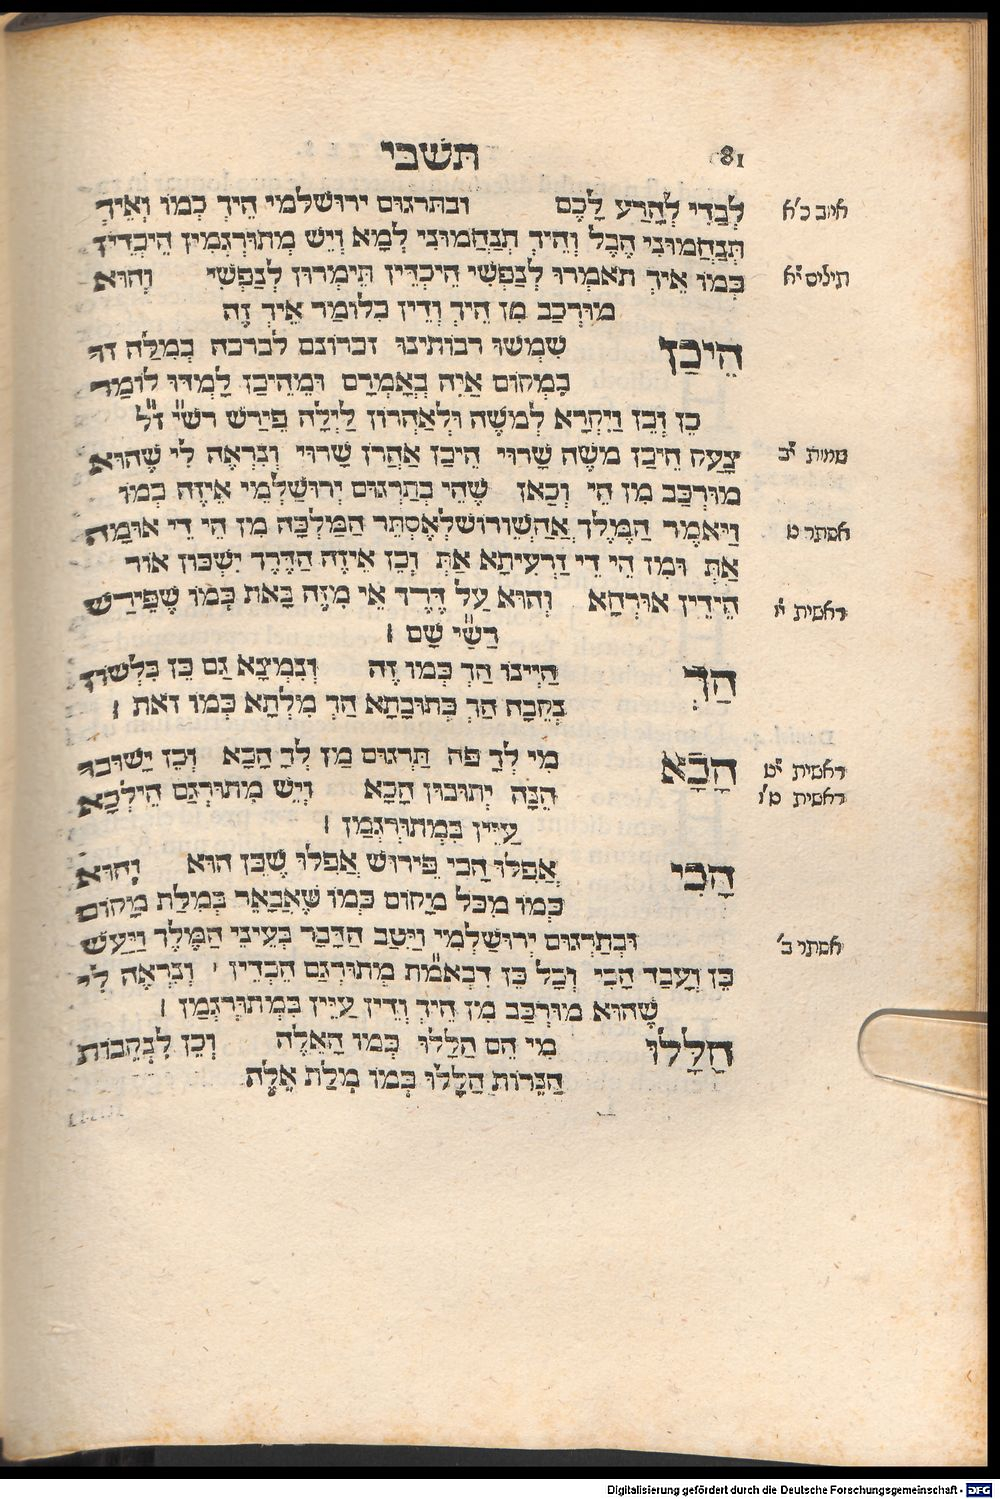 תשבי
81
לְבַדִּי לְהָרַע לָכֶם ובתרגום ירושלמי הֵיךְ כְּמוֹ וְאֵיךְ
איוב כ״א
תְּנַחֲמוּנִי הֶבֶל וְהֵיךְ תְּנַחֲמוּנִי לְמָא וְיֵשׁ מְתוּרְגְּמִין הֵיכְדֵין
כְּמוֹ אֵיךְ תֹּאמְרוּ לְנַפְשִׁי הֵיכְדֵין תֵּימְרוּן לְנַפְשִׁי וְהוּא
תילים י״א
מוּרְכַּב מִן הֵיךְ וְדֵין כְּלוֹמַר אֵיךְ זֶה
הֵיכַן שִׁמְּשׁוּ רבותינו זכרונם לברכה בְּמִלָּה זוֹ
בִּמְקוֹם אַיֵּה בְּאָמְרָם וּמֵהֵיכַן לָמְדוּ לוֹמַר
כֵּן וְכֵן וַיִּקְרָא לְמֹשֶׁה וּלְאַהֲרוֹן לַיְלָה פֵּירֵשׁ רש״י ז״ל
צָעַק הֵיכַן מֹשֶׁה שָׁרוּי הֵיכַן אַהֲרֹן שָׁרוּי וְנִרְאֶה לִי שֶׁהוּא
שמות י״ב
מוּרְכָּב מִן הֵי וְכָאן שֶׁהֵי בְּתַרְגּוּם יְרוּשַׁלְמִי אֵיזֶה כְּמוֹ
וַיֹּאמֶר הַמֶּלֶךְ אֲחַשְׁוֵרוֹשׁ לְאֶסְתֵּר הַמַּלְכָּה מִן הֵי דֵי אוּמָה
אסתר ט
אַתְּ וּמִן הֵי דֵי זַרְעִיתָא אַתְּ וְכֵן אֵיזֶה הַדֶּרֶךְ יִשְׁכּוֹן אוֹר
הֵידֵין אוּרְחָא וְהוּא עַל דֶּרֶךְ אֵי מִזֶּה בָּאת כְּמוֹ שֶׁפֵּירַשׁ
ראשית י״ו
רַשִׁ״י שָׁם ׃
הַךְ הַיְינוּ הַךְ כְּמוֹ זֶה וְנִמְצָא גַם כֵּן בִּלְשׁוֹן
נְקֵבָה הַךְ כְּתוּבְתָא הַךְ מִלְתָא כְּמוֹ זֹאת ׃
הָכָא מִי לְךָ פֹה תַּרְגּוּם מַן לָךְ הָכָא וְכֵן יָשׁוּבוּ
ראשית י״ט
הֵנָּה יְתוּבוּן הָכָא וְיֵשׁ מְתוּרְגַּם הֵילְכָא
ראשית ט״ו
עַיֵּין בִּמְתוּרְגְּמָן ׃
הָכִי אֲפִלּוּ הָכִי פֵּירוּשׁ אֲפִלּוּ שֶׁכֵּן הוּא וְהוּא
כְּמוֹ מִכָּל מָקוֹם כְּמוֹ שֶׁאֲבָאֵר בְּמִלַּת מָקוֹם
וּבְתַרְגּוּם יְרוּשַׁלְמִי וַיִּיטַב הַדָּבָר בְּעֵינֵי הַמֶּלֶךְ וַיַּעַשׂ
אסתר ב׳
כֵּן וַעֲבַד הָכִי וְכָל כֵּן דִּבְאֱמ״ת מְתוּרְגַּם הֵכְדֵין ׃ וְנִרְאֶה לִי
שֶׁהוּא מוּרְכַּב מִן הֵיךְ וְדֵין עַיֵּין בִּמְתוּרְגְּמָן ׃
הַלָּלוּ מִי הֵם הַלָּלוּ כְּמוֹ הָאֵלֶּה וְכֵן לִנְקֵבוֹת
הַנֵּרוֹת הַלָּלוּ כְּמוֹ מִלַּת אֵלֶּה
Digitalisierung gefördert durch die Deutsche Forschungsgemeinschaft - DFG